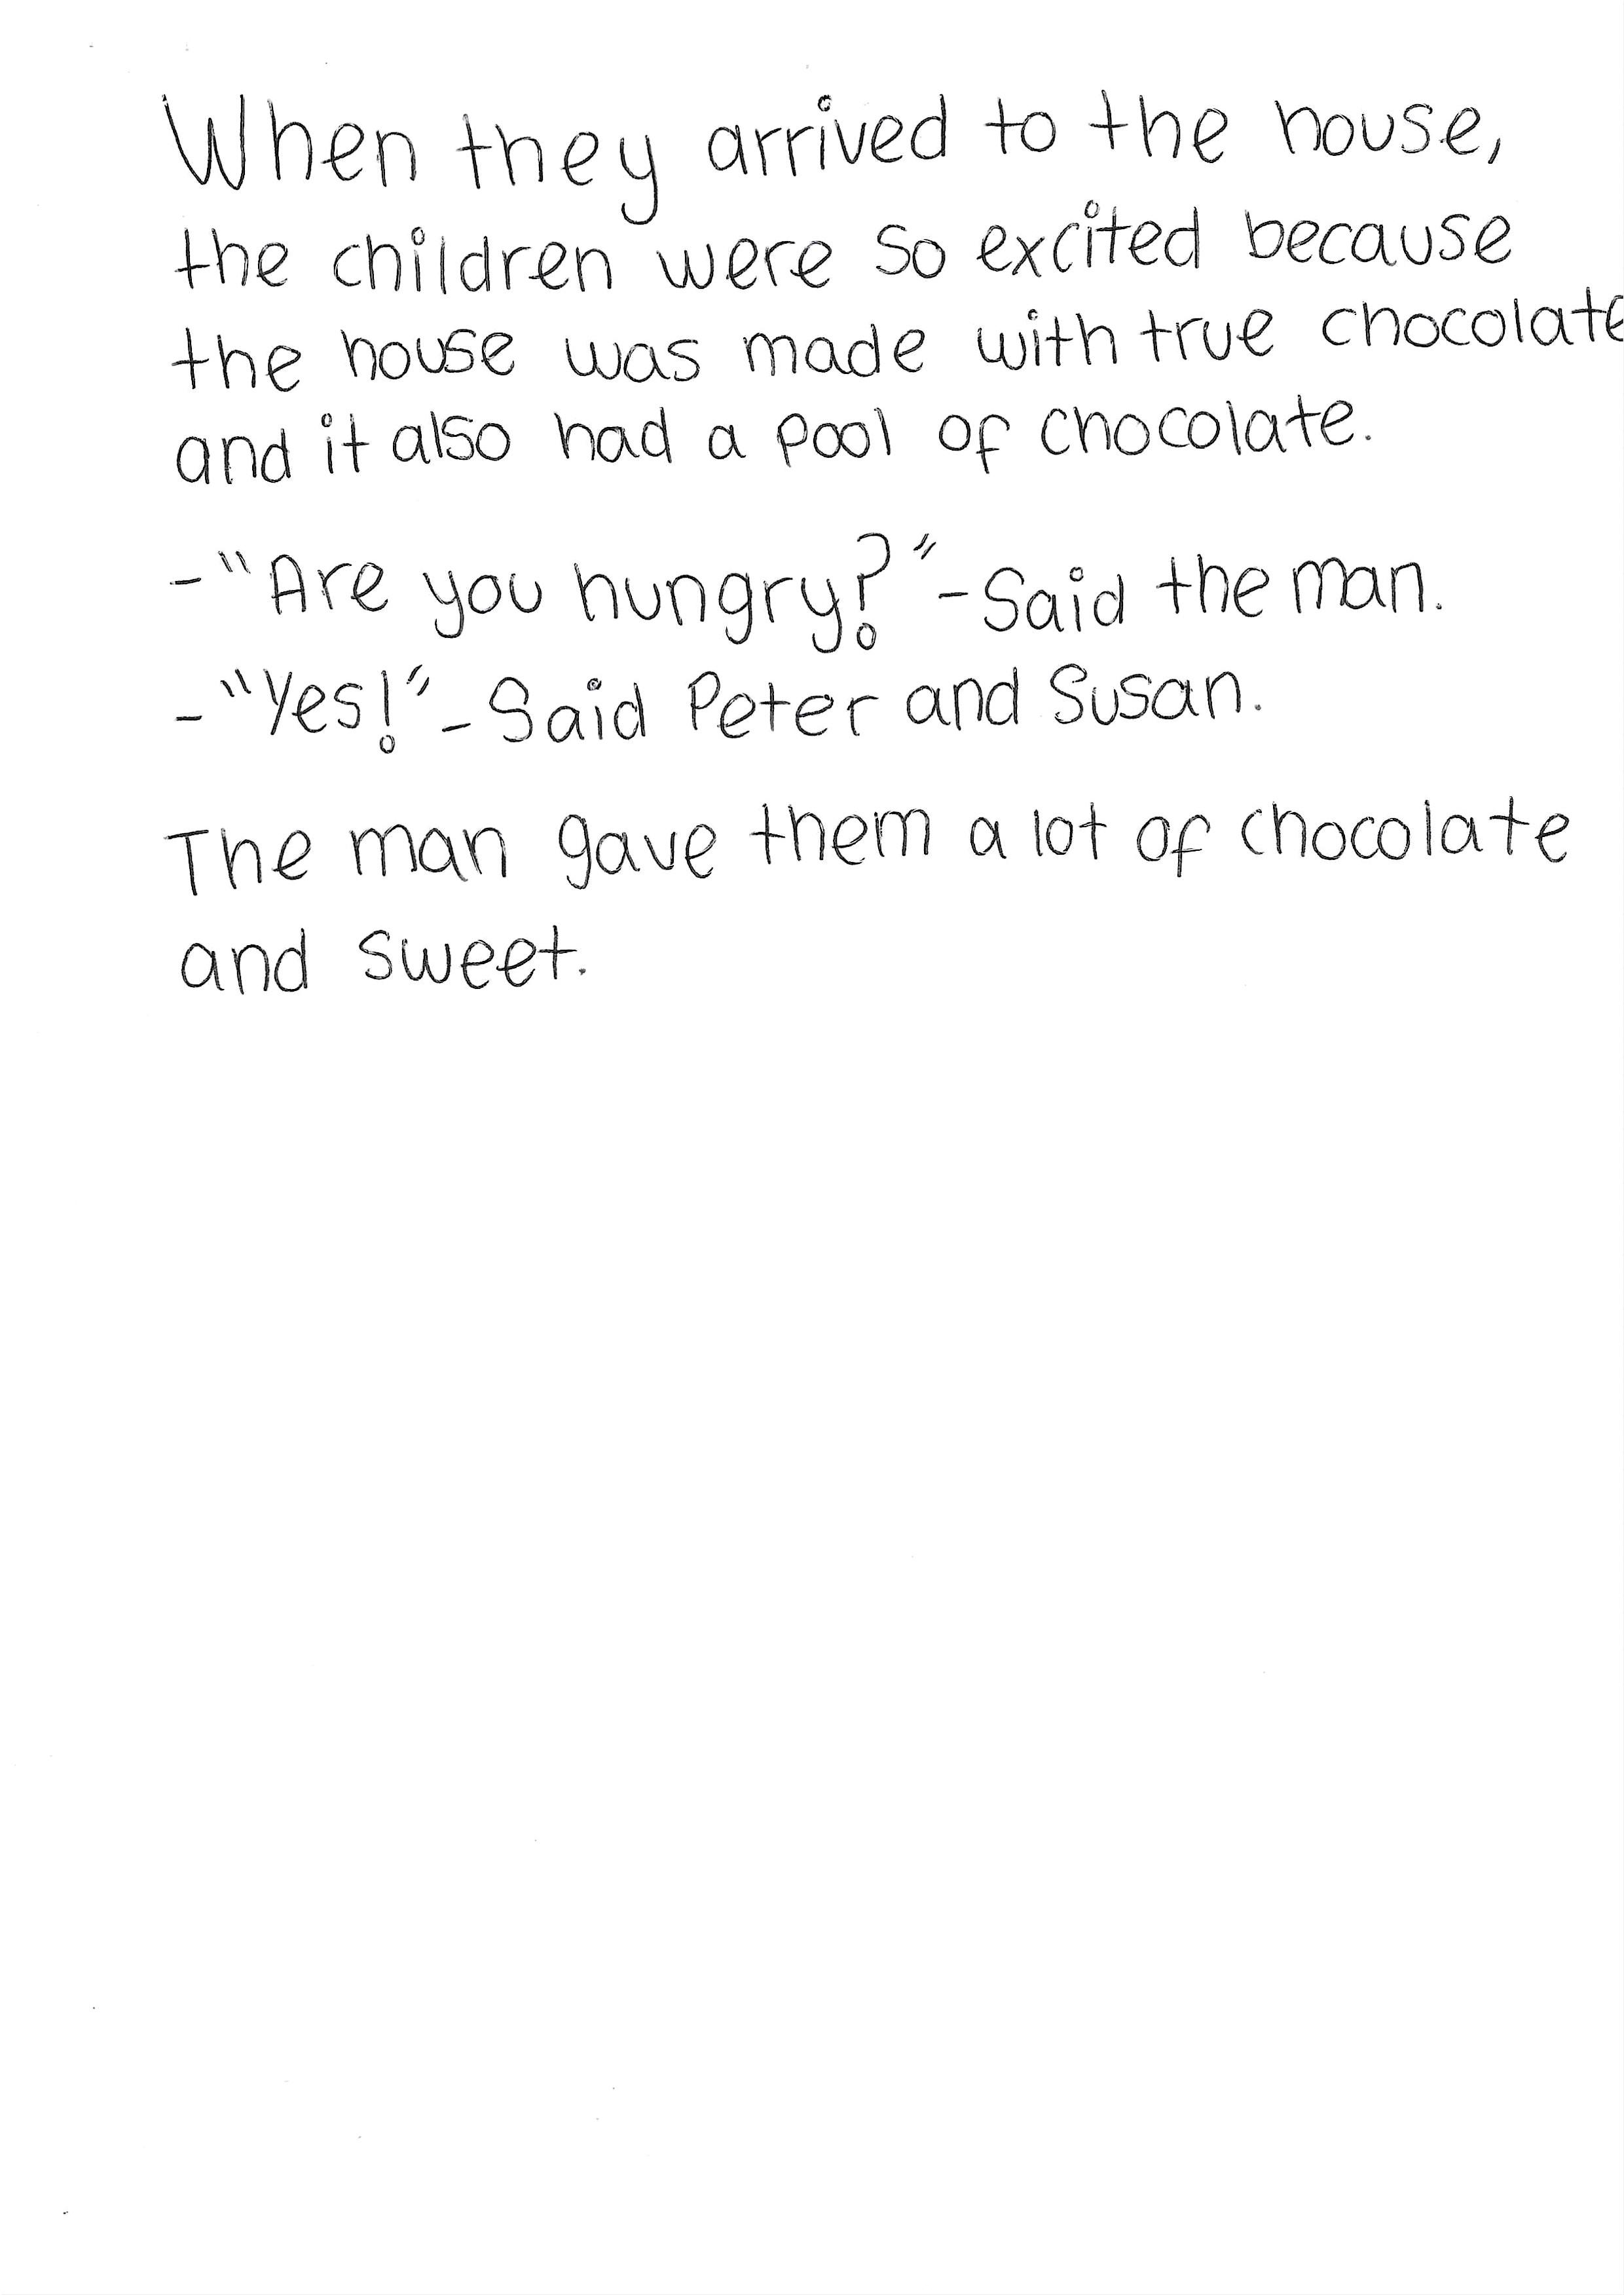 When they arrived to the house,
the children were so excited because
the house was made with true chocolate
and it also had a pool of chocolate.
-"Are you hungry?"-Said the man.
-"Yes!"-Said Peter and Susan.
The man gave them a lot of chocolate
and sweet.